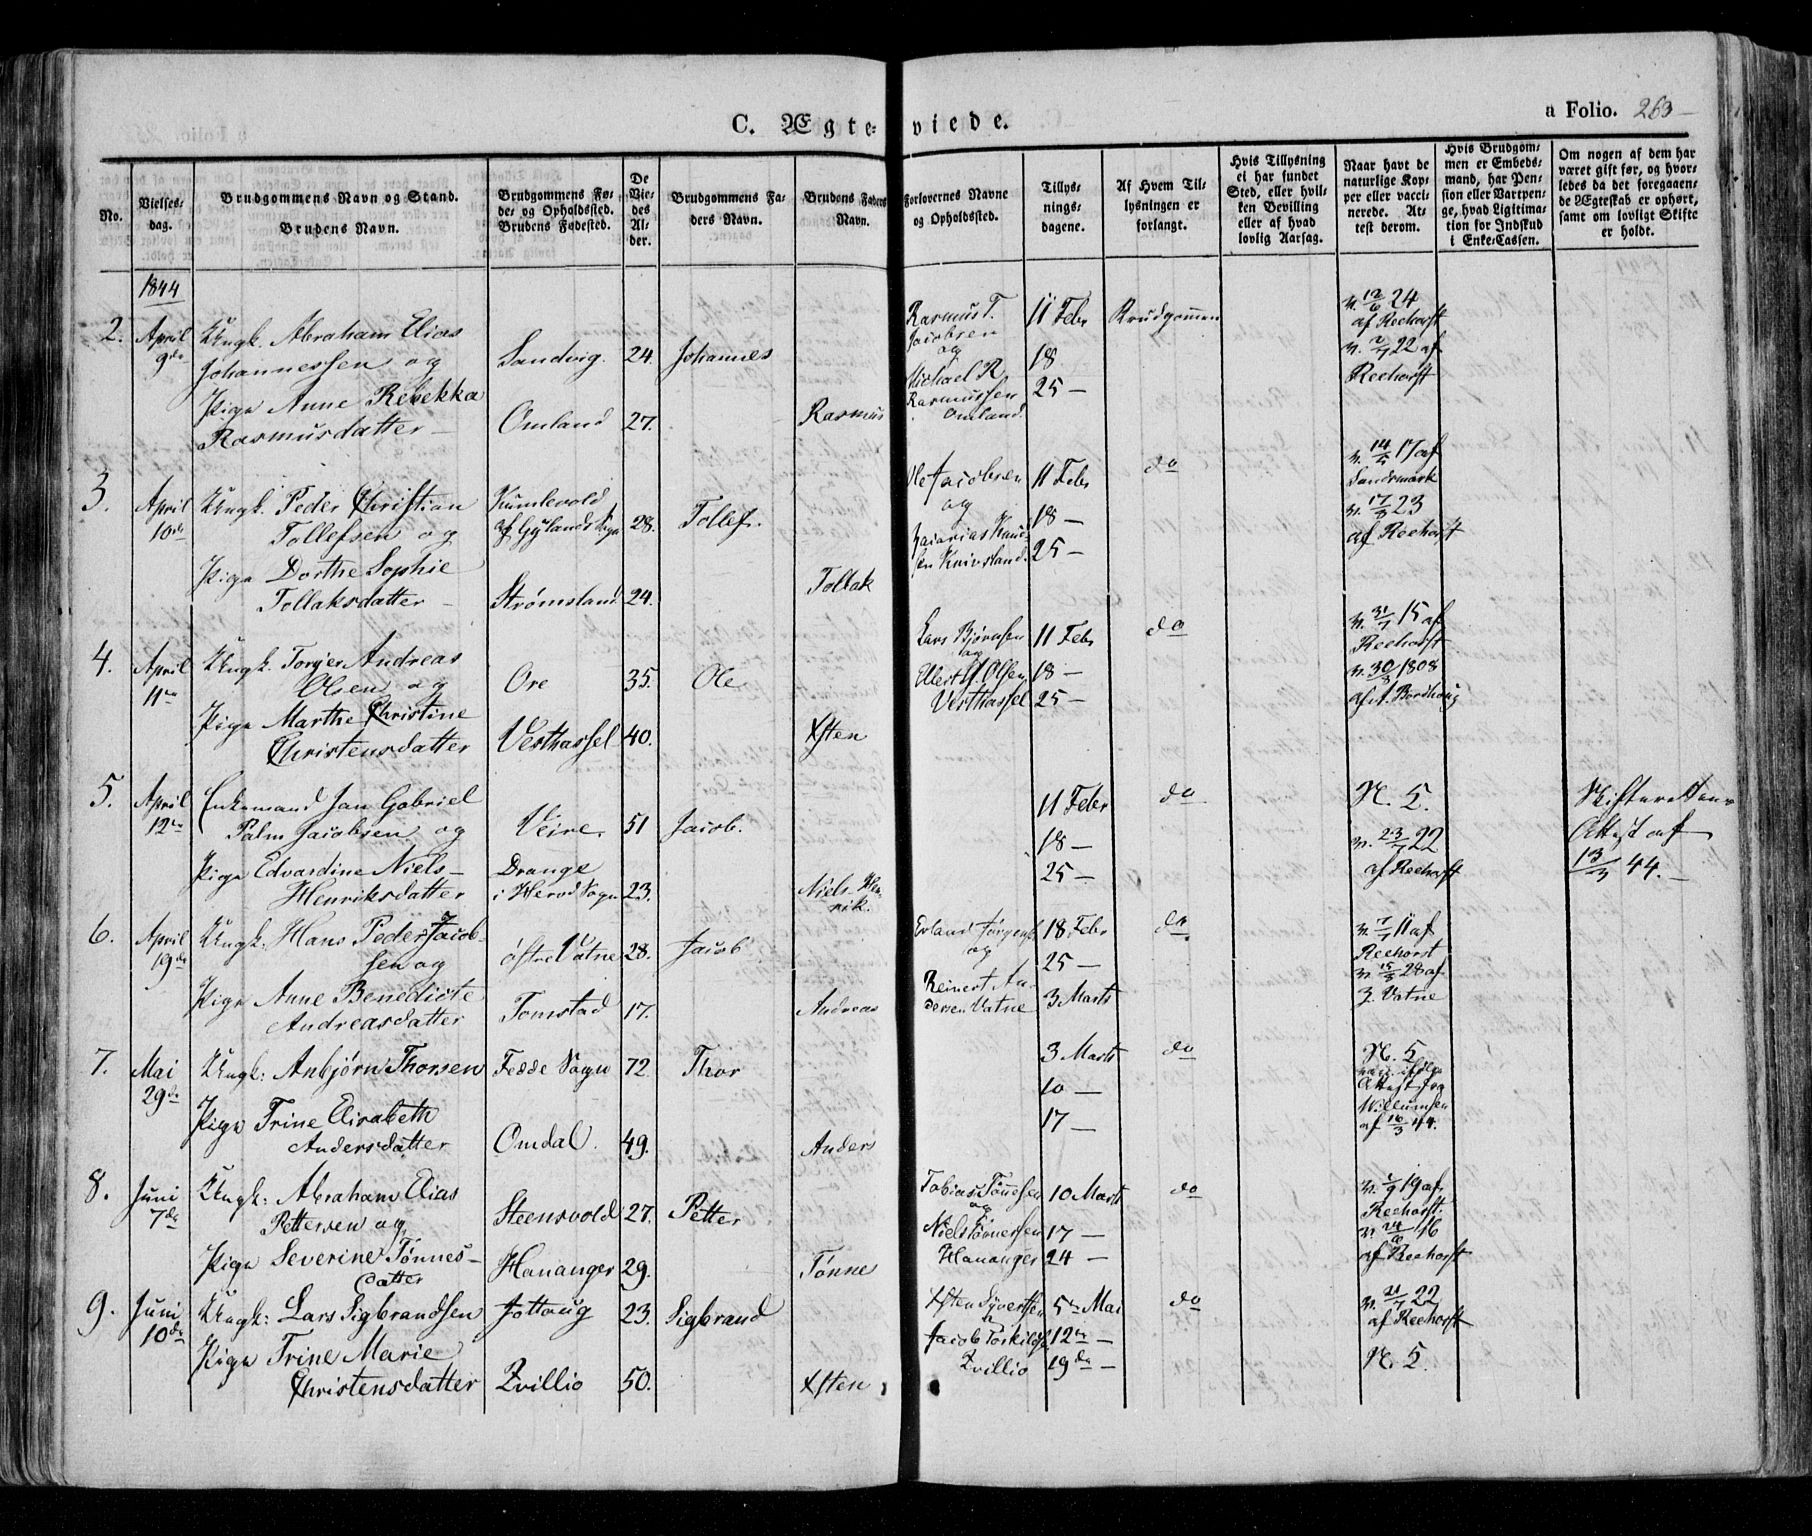 C. Ægte-viede.
a Folio. 263
No.
Vielses-
dag.
Brudgommens Navn og Stand.
Brudens Navn.
Brudgommens Fø-
de- og Opholdssted.
Brudens Fødested.
De
Vie-
des
Al-
der.
Brudgommens Fa-
ders Navn.
Brudens Faders
Navn.
Forlovernes Navne
og Opholdssted.
Tillys-
nings-
dagene.
Af Hvem Til-
lysningen er
forlangt.
Hvis Tillysning
ei har fundet
Sted, eller hvil-
ken Bevilling
eller af hvad
lovlig Aarsag.
Naar havt de
naturlige Kop-
per eller vacci-
nerede. At-
test derom.
Hvis Brudgom-
men er Embeds-
mand, har Pen-
sion eller Vartpen-
ge, hvad Ligitima-
tion for Indskud
i Enke-Cassen.
Om nogen af dem har
været gift før, og hvor-
ledes da det foregaaen-
de Ægteskab er ophørt,
samt om lovligt Skifte
er holdt.
1844
2. April 9de Ungk. Abraham Elias
Johannessen og
Sandvig. 24. Johannes
Pige Anne Rebekka
Rasmusdatter
Omland 27. Rasmus
Rasmus T.
Jacobsen
og
Michael R.
Rasmussen
Omland.
11 Febr
18
25 —
Brudgommen
v. 12/6 24
af Reehorst
v. 2/7 22 af
Reehorst
3. April 10de Ungk. Peder Christian
Tollefsen og
Kumlevold
af Gylands Sogn
28. Tollef.
Pige Dorthe Sophie
Tollaksdatter
Strømsland 24. Tollak
Ole Jacobsen
og
Zacarias Knud-
sen Knivsland.
11 Febr
18 —
25 —
do
17 af
Sandsmark
v. 17/8 23
af Reehorst
4. April 11te Ungk. Torjer Andreas
Olsen og
Ore 35. Ole
Pige Marthe Christine
Christensdatter
Vesthassel 40. Xsten
Lars Bjørnsen
og
Ellert A. Olsen
Vesthassel
11 Febr
18 —
25 —
do
v. 31/7 15 af
Reehorst
v. 30/8 1808
af A. Bordhoug
5. April 12te Enkemand Jan Gabriel
Palm Jacobsen og
Veire. 51 Jacob.
Pige Edvardine Niels-
Henriksdatter
Drange
i Herod Sogn 23.
Niels Hen-
rik.
11 Febr
18 —
25 —
do
N. 5.
v. 23/7 22
af Reehorst
Skifterettens
Attest af
13/3 44. —
6. April 19de Ungk: Hans Peder Jacob-
sen og
østre Vatne 28. Jacob
Pige Anne Benedicte
Andreasdatter
Tomstad 17. Andreas
Erland Jørgens.
og
Reinert An-
dersen Vatne
18 Febr
25 —
3 Marts
do
v. 7/7 11 af
Reehorst
v. 15/5 28 af
Z. Vatne
7. Mai 29de Ungk: Anbjørn Thorsen
Fedde Sogn 72. Thor
Pige Trine Elisabeth
Andersdatter
Omdal. 49. Anders
3 Marts
10 —
17 —
do
N. 5
Attest fra
Willumsen
af 16/3 44.
8. Juni 7de Ungk: Abraham Elias
Pettersen og
Steensvold 27. Petter
Pige Severine Tønnes-
datter
Hananger 29. Tønne
Tobias Tønnesen
og
Niels Tønnessen
Hananger
10 Marts
17 —
24 —
do
19 af
Reehorst.
16
af Reehorst
9. Juni 10de Ungk: Lars Sigbrandsen
Jottaug 23. Sigbrand
Pige Trine Marie
Christensdatter
Zvillio 50. Xsten
Xsten Syvertsen
&
Jacob Torkilds.
Zvillio
5te Mai
12te —
19de —
do
v. 21/7 22
af Reehorst
N. 5.